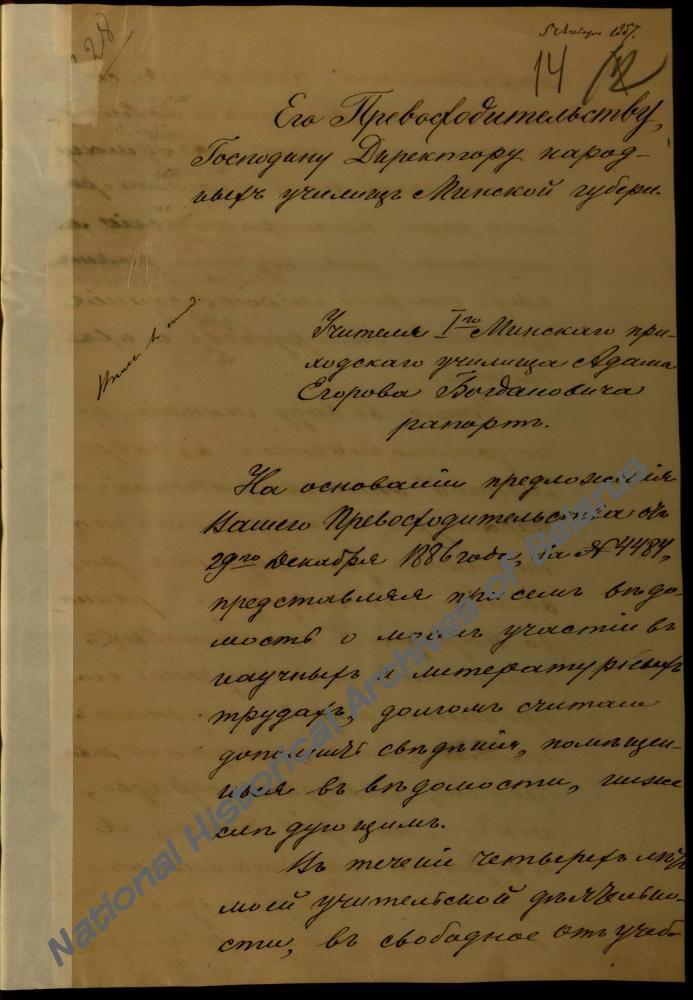 28
5 Января 1887.
14
Его Превосходительству,
Господину Директору народ-
ныхъ училищъ Минской губерн.
Учителя I-го Минскаго при-
ходскаго училища Адама
Егорова Богдановича
рапортъ.
На основаніи предложенія
Вашего Превосходительства отъ
29го Декабря 1886 года, за № 4484,
представляя при семъ вѣдо-
мость о моемъ участіи въ
научныхъ и литературныхъ
трудахъ, долгомъ считаю
дополнить свѣдѣнія, помѣщен-
ныя въ вѣдомости, ниже
слѣдующимъ.
Въ теченіи четырехъ лѣтъ
моей учительской дѣятельно-
сти, въ свободное отъ учеб-
National Historical Archives of Belarus